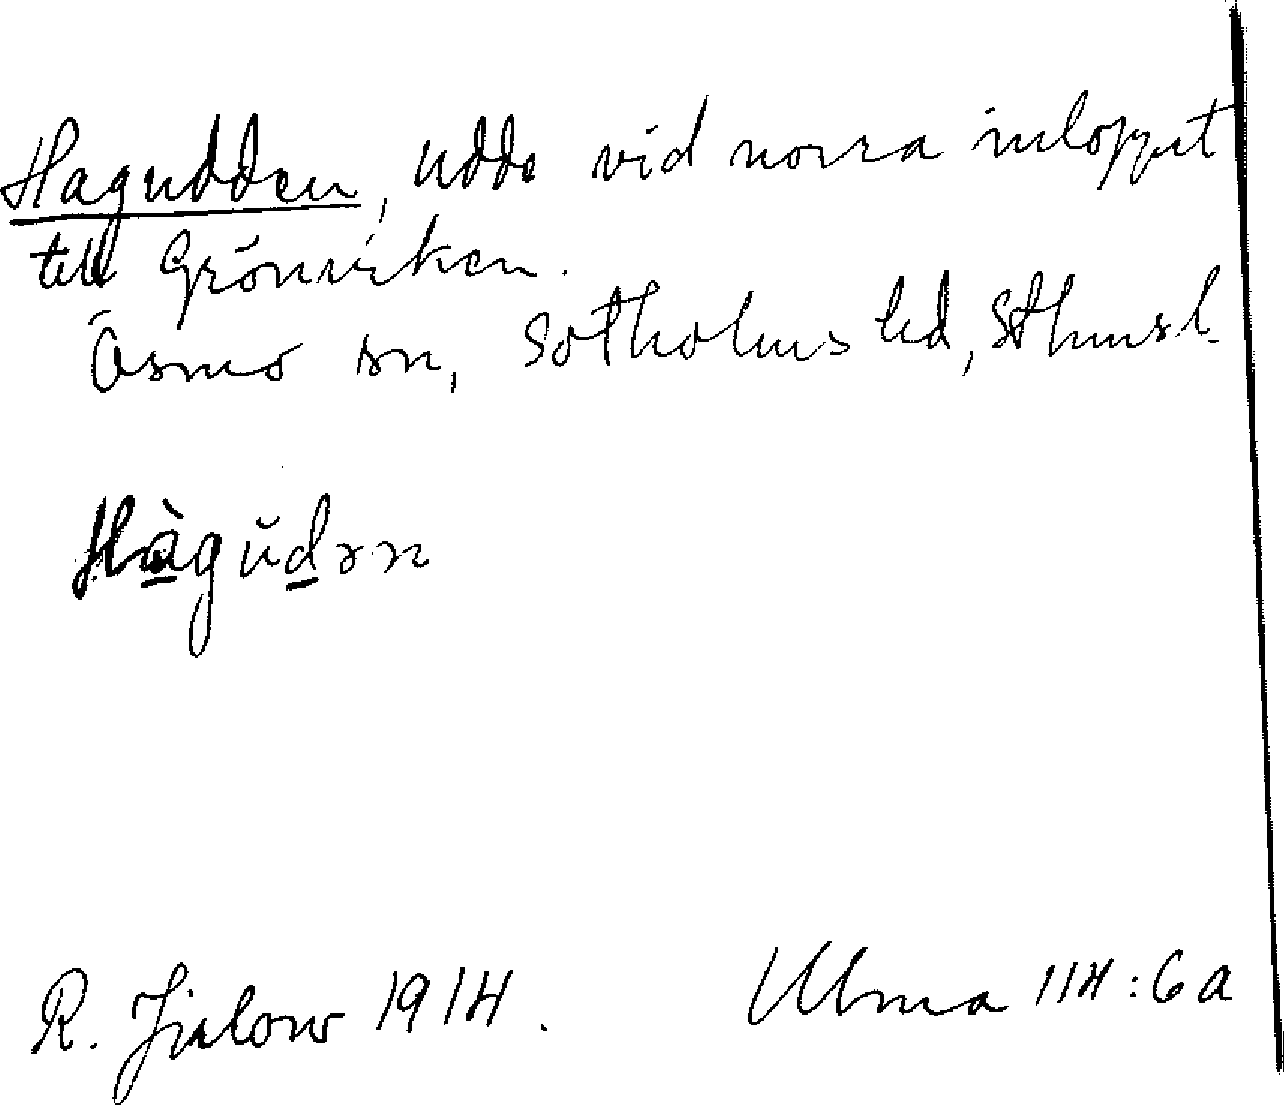 Hagudden, udde vid norra inloppet
till Grönviken.
Ösmo sn, Sotholms hd, Sthmsl.
Hàgŭdən
R. 1914.
Ulma 114:6a